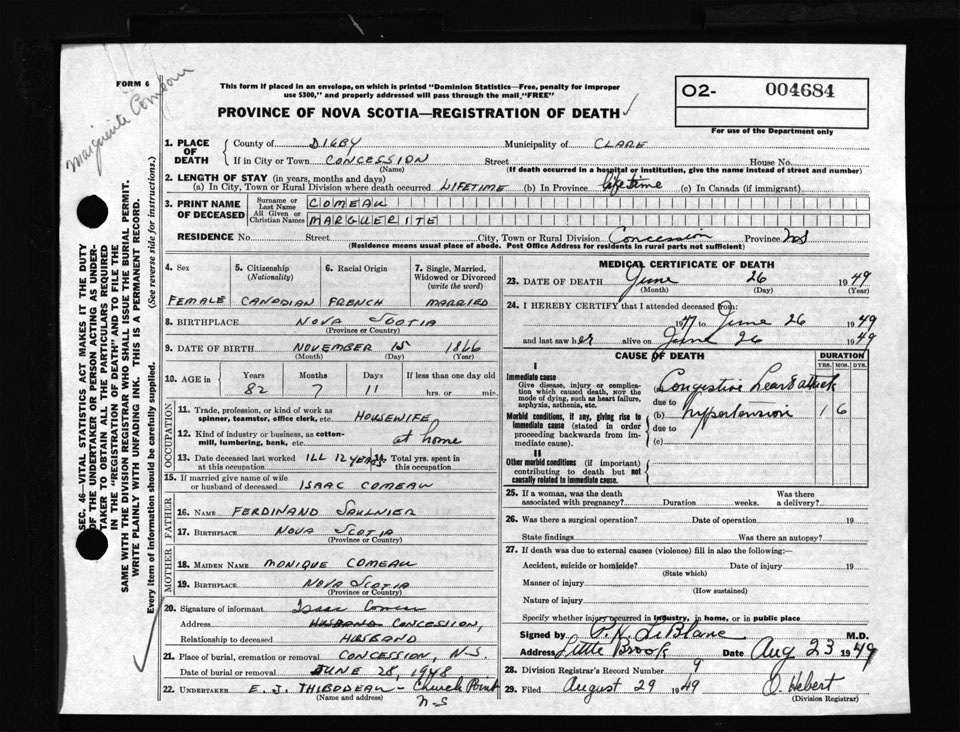 Marguerite Comeau
FORM 6
This form if placed in an envelope, on which is printed "Dominion Statistics—Free, penalty for improper
use $300," and properly addressed will pass through the mail "FREE"
PROVINCE OF NOVA SCOTIA—REGISTRATION OF DEATH
02- 004684
For use of the Department only
SEC. 46—VITAL STATISTICS ACT MAKES IT THE DUTY
OF THE UNDERTAKER OR PERSON ACTING AS UNDER-
TAKER TO OBTAIN ALL THE PARTICULARS REQUIRED
IN THE "REGISTRATION OF DEATH" AND TO FILE THE
SAME WITH THE DIVISION REGISTRAR WHO SHALL ISSUE THE BURIAL PERMIT.
WRITE PLAINLY WITH UNFADING INK. THIS IS A PERMANENT RECORD.
Every item of information should be carefully supplied. (See reverse side for instructions.)
1. PLACE OF DEATH County of DIGBY Municipality of CLARE
If in City or Town CONCESSION Street House No.
(Name) (If death occurred in a hospital or institution, give the name instead of street and number)
2. LENGTH OF STAY (in years, months and days)
(a) In City, Town or Rural Division where death occurred LIFETIME (b) In Province lifetime (c) In Canada (if immigrant)
3. PRINT NAME OF DECEASED Surname or Last Name COMEAU
All Given or Christian Names MARGUERITE
RESIDENCE No. Street City, Town or Rural Division Concession Province NS
(Residence means usual place of abode. Post Office Address for residents in rural parts not sufficient)
4. Sex 5. Citizenship (Nationality) 6. Racial Origin 7. Single, Married, Widowed or Divorced (write the word)
FEMALE CANADIAN FRENCH MARRIED
8. BIRTHPLACE NOVA SCOTIA
(Province or Country)
9. DATE OF BIRTH NOVEMBER 15 1866
(Month) (Day) (Year)
10. AGE in Years Months Days If less than one day old
82 7 11 hrs. or min.
OCCUPATION
11. Trade, profession, or kind of work as
spinner, teamster, office clerk, etc. HOUSEWIFE
12. Kind of industry or business, as cotton-
mill, lumbering, bank, etc. at home
13. Date deceased last worked at this occupation ILL 12 YEARS Total yrs. spent in this occupation
15. If married give name of wife
or husband of deceased ISAAC COMEAU
FATHER
16. NAME FERDINAND SAULNIER
17. BIRTHPLACE NOVA SCOTIA
(Province or Country)
MOTHER
18. MAIDEN NAME MONIQUE COMEAU
19. BIRTHPLACE NOVA SCOTIA
(Province or Country)
20. Signature of informant Isaac Comeau
Address HUSBAND CONCESSION,
Relationship to deceased HUSBAND
21. Place of burial, cremation or removal CONCESSION, N.S.
Date of burial or removal JUNE 28, 1948
22. UNDERTAKER E. J. THIBODEAU - Church Point
(Name and address) N-S
MEDICAL CERTIFICATE OF DEATH
23. DATE OF DEATH June 26 1949
(Month) (Day) (Year)
24. I HEREBY CERTIFY that I attended deceased from:
1947 to June 26 1949
and last saw her alive on June 26 1949
CAUSE OF DEATH DURATION
YRS. MOS. DYS.
I
Immediate cause
Give disease, injury or complica-
tion which caused death, NOT the
mode of dying, such as heart failure,
asphyxia, asthenia, etc.
(a) Congestive heart attack
due to
Morbid conditions, if any, giving rise to
immediate cause (stated in order
proceeding backwards from im-
mediate cause).
(b) hypertension 1 6
due to
(c)
II
Other morbid conditions (if important)
contributing to death but not
causally related to immediate cause.
25. If a woman, was the death associated with pregnancy? Duration weeks. Was there a delivery?
26. Was there a surgical operation? Date of operation 19
State findings Was there an autopsy?
27. If death was due to external causes (violence) fill in also the following:—
Accident, suicide or homicide? Date of injury 19
(State which)
Manner of injury
(How sustained)
Nature of injury
Specify whether injury occurred in industry, in home, or in public place
Signed by P. H. LeBlanc M.D.
Address Little Brook Date Aug 23 1949
28. Division Registrar's Record Number 9
29. Filed August 29 1949 O. Hebert
(Division Registrar)